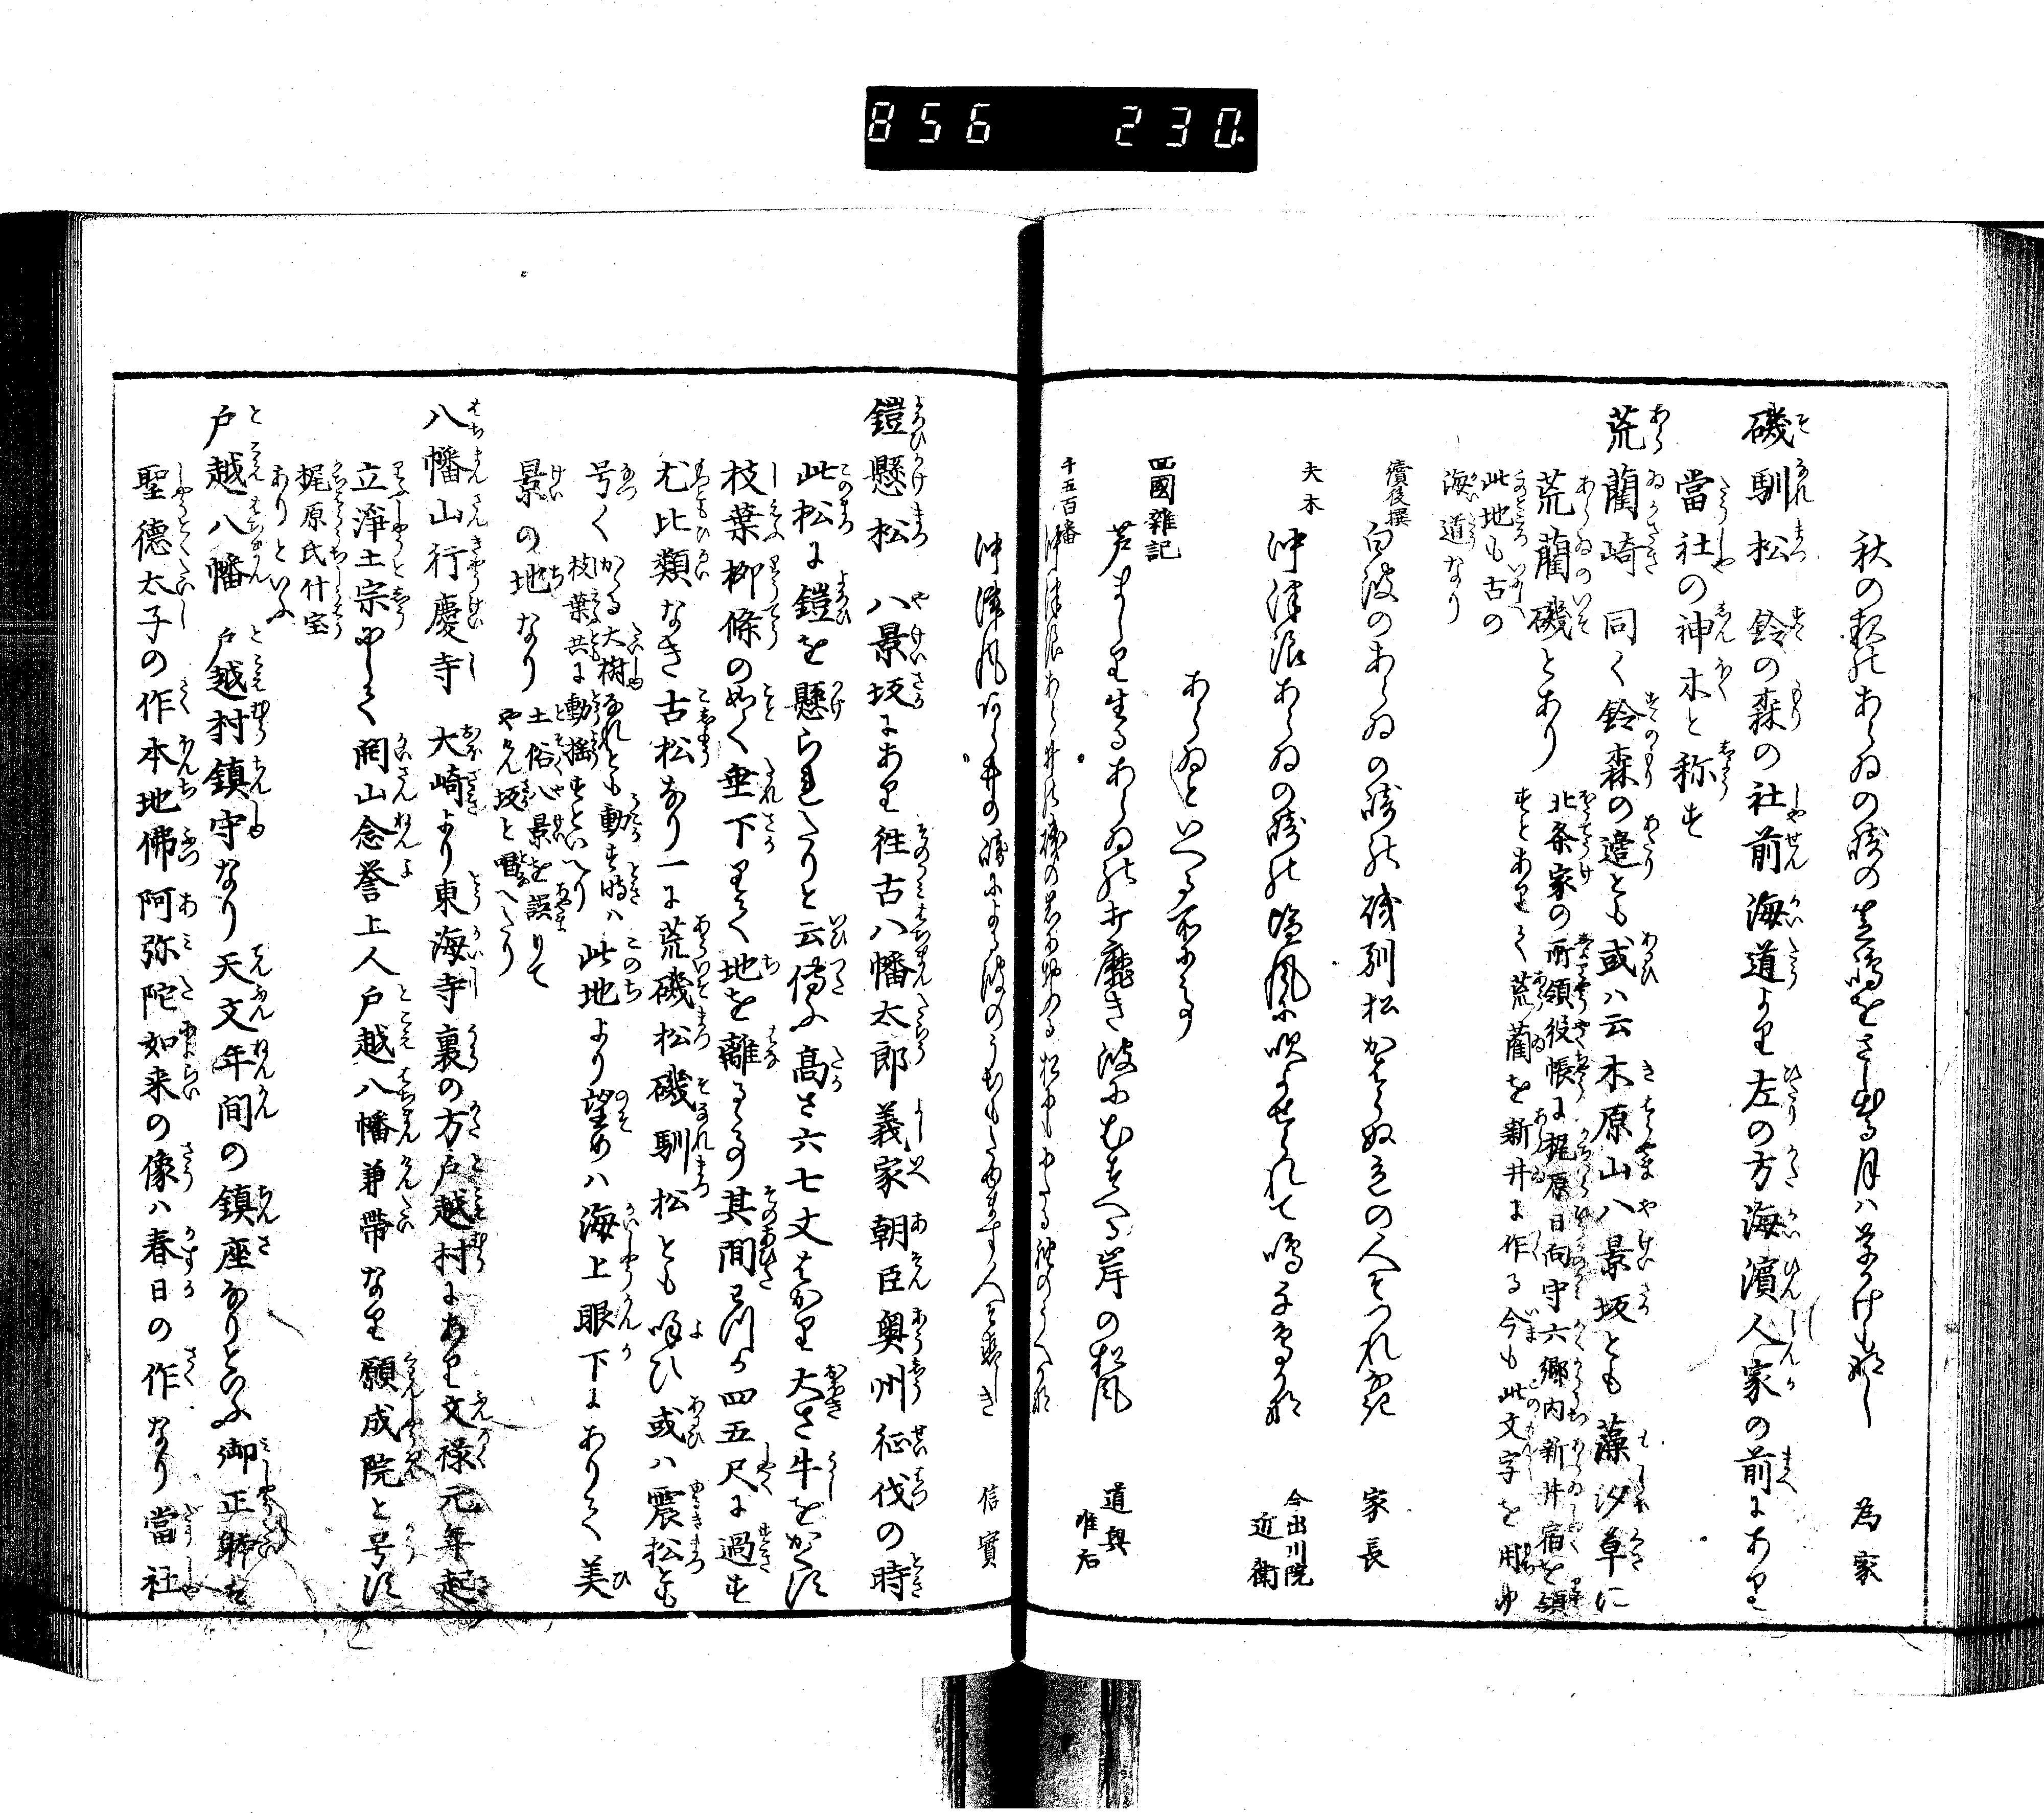 856 230
秋の来てあらゐの磯の笠嶋をさし出る月ハ草かけもなし 為家
磯馴松 鈴の森の社前海道より左の方海濱人家の前にあり
當社の神木と称す
荒藺崎 同く鈴森の邉とも或ハ云木原山八景坂とも 藻汐草に
荒藺磯とあり 北条家の所領役帳に梶原日向守六郷内新井宿を領
すとありて荒藺を新井に作る今も此文字を用ゆ
此地も古の
海道なり
續後撰
白波のあらゐの磯の磯馴松かはらぬ色の人そつれなき 家長
夫木
沖津浪あらゐの磯の塩風に吹よせられて鳴千鳥かな 今出川院近衛
四國雜記
あらゐといへる所にて
芦ましり生るあらゐの打靡き波にむせへる岸の松風 道興准后
千五百番
沖津浪あらゐの磯の
沖津風
信實
鎧懸松 八景坂にあり往古八幡太郎義家朝臣奥州征伐の時
此松に鎧を懸られたりと云傳ふ高さ六七丈はかり大さ牛をかくす
枝葉柳條の如く垂下りて地を離るる事其間わつか四五尺に過す
尤比類なき古松なり一に荒磯松磯馴松とも呼ひ或ハ震松とも
号く かゝる大樹なれとも動す時ハ
枝葉共に動揺すといへり
此地より望めハ海上眼下にありて美
景の地なり 土俗八景を誤りて
やけん坂と唱へたり
八幡山行慶寺 大崎より東海寺裏の方戸越村にあり文禄元年起
立淨土宗にして開山念誉上人戸越八幡兼帶なり願成院と号す
梶原氏什宝
ありといふ
戸越八幡 戸越村鎮守なり天文年間の鎮座なりといふ御正躰は
聖德太子の作本地佛阿弥陀如来の像ハ春日の作なり當社